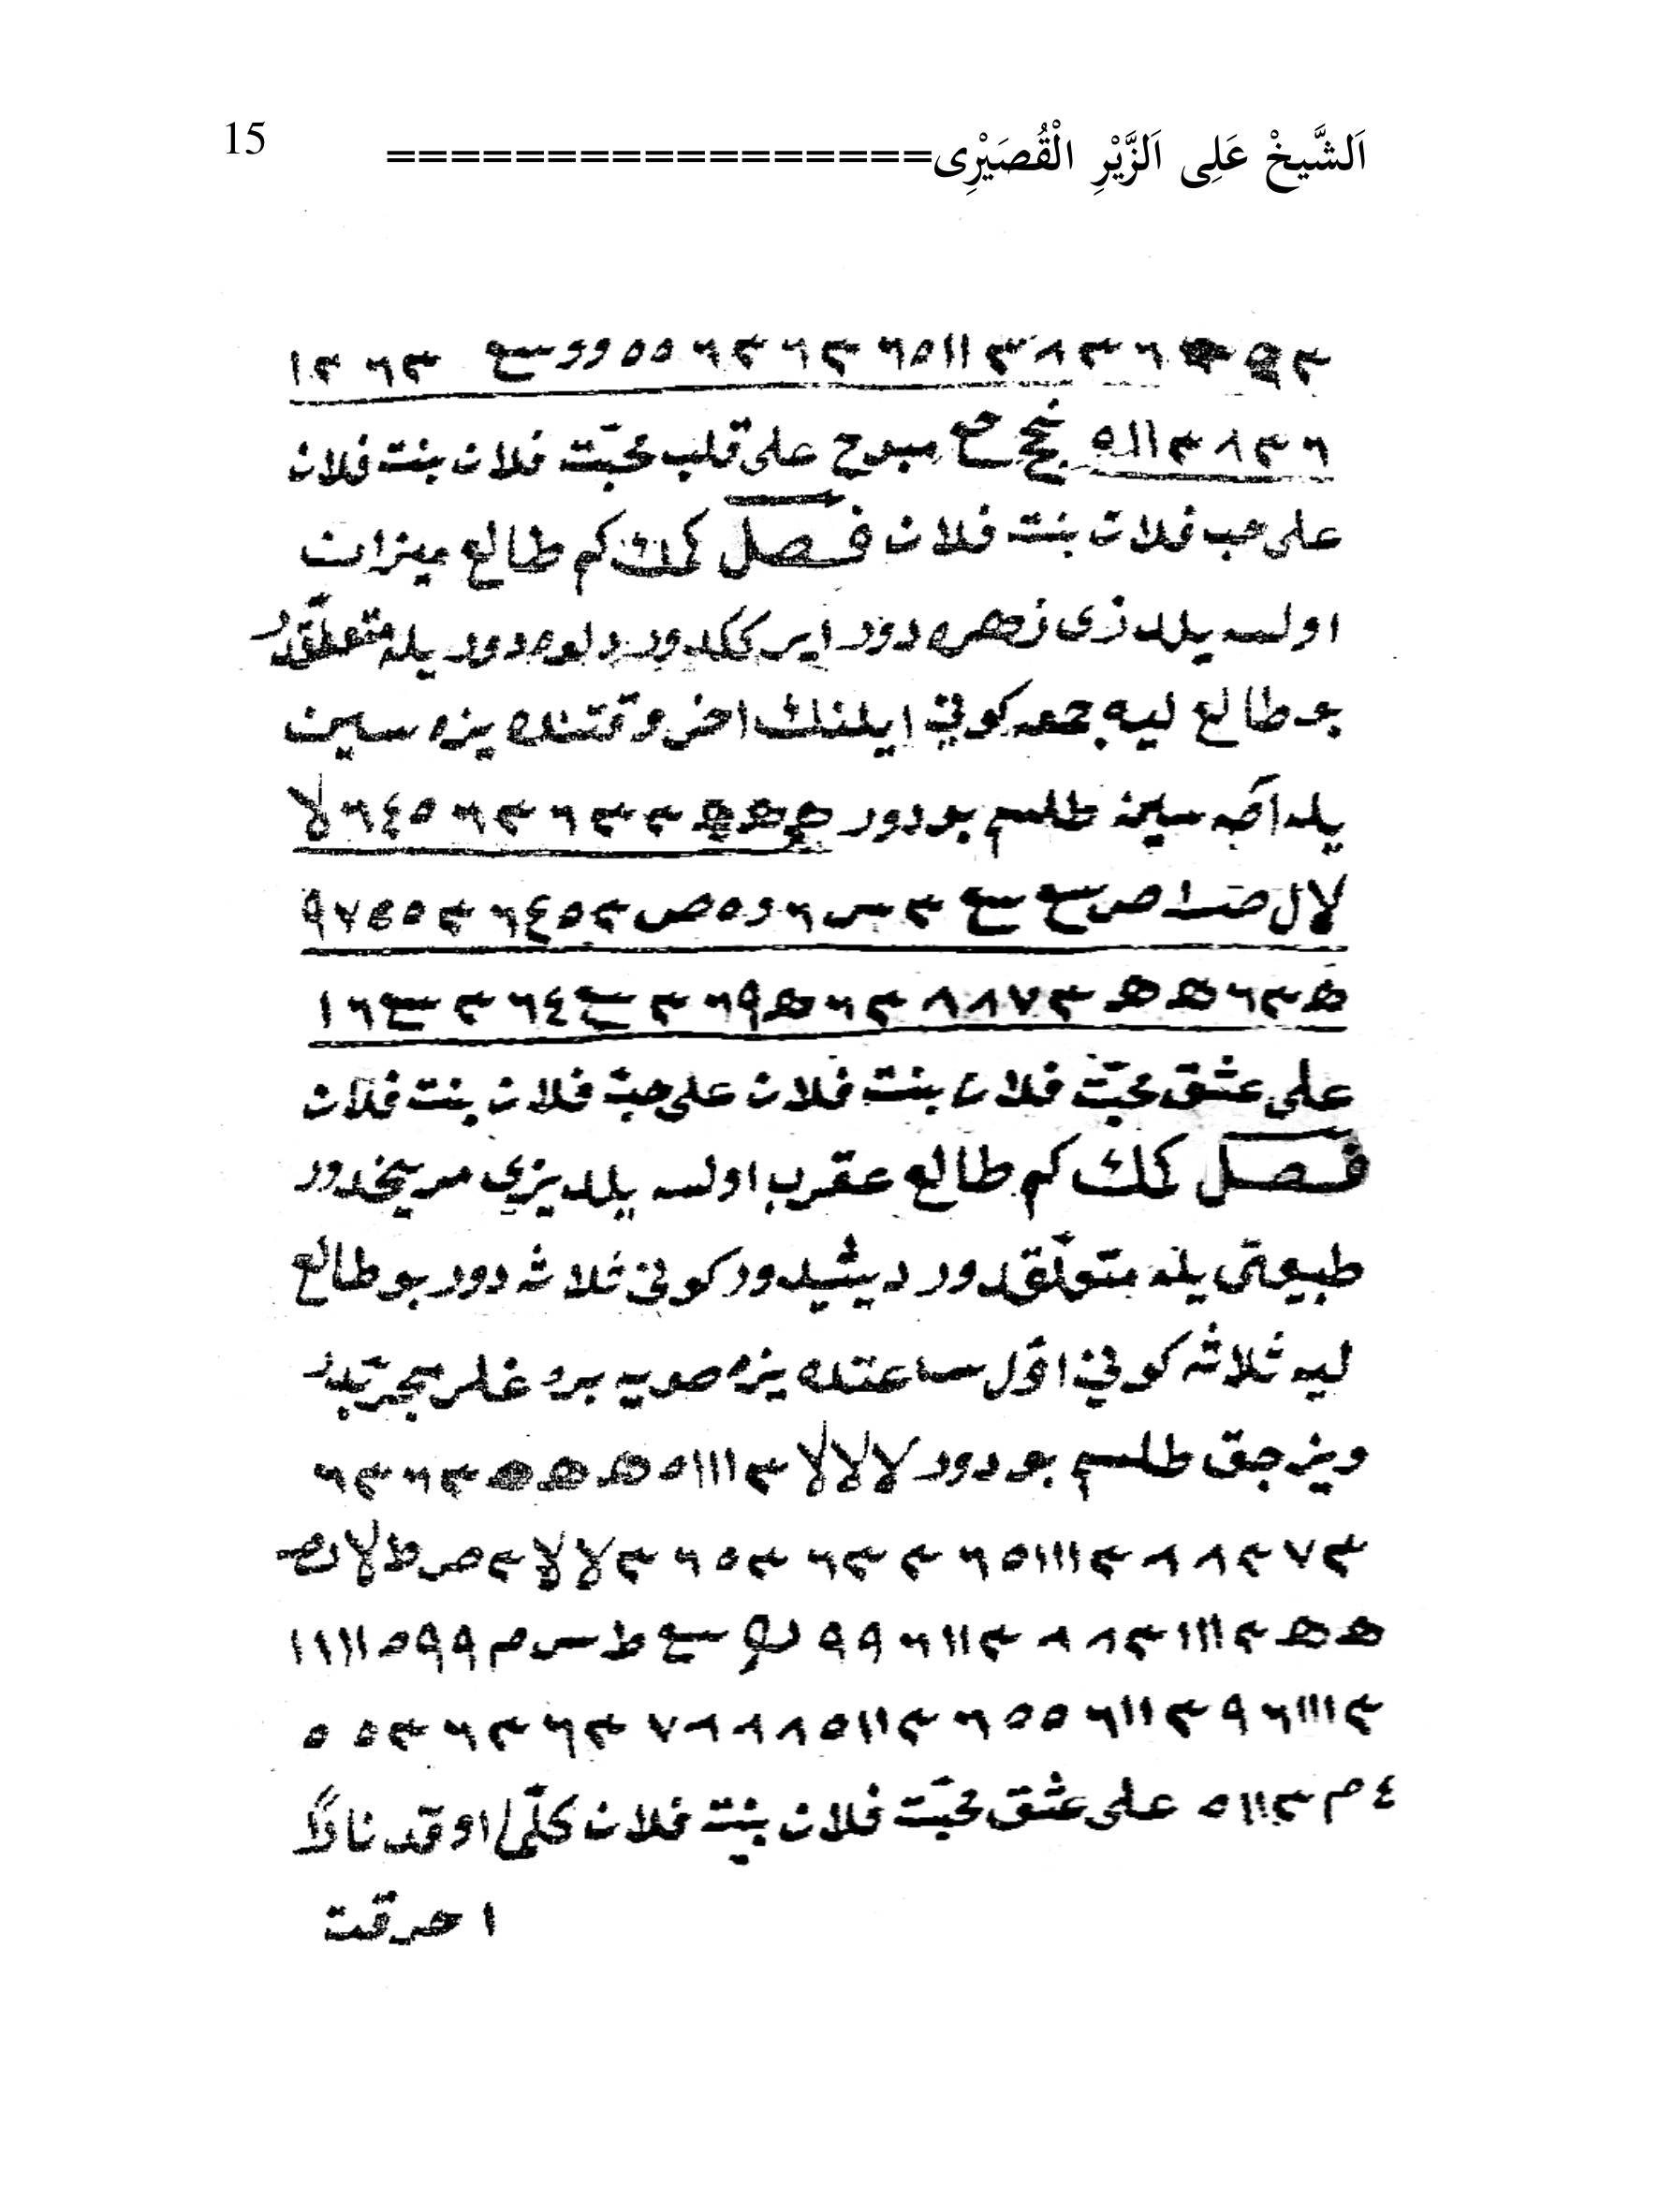 15 اَلشَّيخْ عَلِى اَلزَّيْرِ الْقُصَيْرِى=================
٦ ٣ ٨ ٣ ١١٥ ٦ ٣ ٦ ٣ ٦ ٥٥ وو سع ٣ ٦ ٣ ١
٦ ٣ ٨ ٣ ١١٥ على قلب محبّت فلان بنت فلان
على حب فلان بنت فلان فصل كمك كم طالع ميزان
اولسه يلدزى زهره دور يله متعلّقدر
بو طالع ليه جمعه كونى ايلنك اخر وقتنده يزه سين
يله اقه سين طلسم بودور ههه ٣ ٣ ٦ ٣ ٦ ٥٤٦ لا
لا ل ص سع سع ٣ س ٦ و ٥ ص ٣ ٥ ٤ ٦ ٣ ٥ ٧٩
ه ٣ ٦ هه ٣ ٧ ٨ ٨ ٣ ٦ ه ٩ ٦ ٣ سع ٤ ٦ ٣ سع ٦ ١
على عشق محبّت فلان بنت فلان على حبّ فلان بنت فلان
فصل كمك كم طالع عقرب اولسه يلديزى مريخدور
طبيعتى يله متعلّقدور ديشيدور كونى ثلاثه دور بو طالع
ليه ثلاثه كونى اوّل ساعتده يزه صويه
طلسم بودور لا لا لا ٣ ١١١٥ هههه ٣ ٦ ٣ ٦
٣ ٧ ٣ ٨ ٨ ٣ ١١١٥ ٦ ٣ ٣ ٦ ٣ ٥ ٦ ٣ لا لا ٣ ص ط لا
هه ٣ ١١١ ٣ ٨ ٨ ٣ ١١ ٦ ٩ ٩ سع ط س م ٩ ٩ ٥ ١١١١
٣ ١١١ ٦ ٩ ٣ ١١ ٦ ٥ ٥ ٦ ٣ ١١ ٥ ٨ ٨ ٨ ٧ ٣ ٦ ٣ ٦ ٣ ٥ ٥
٤ م ٣ ١١ ٥ على عشق محبّت فلان بنت فلان كلّما اوقد نارًا
احرقت